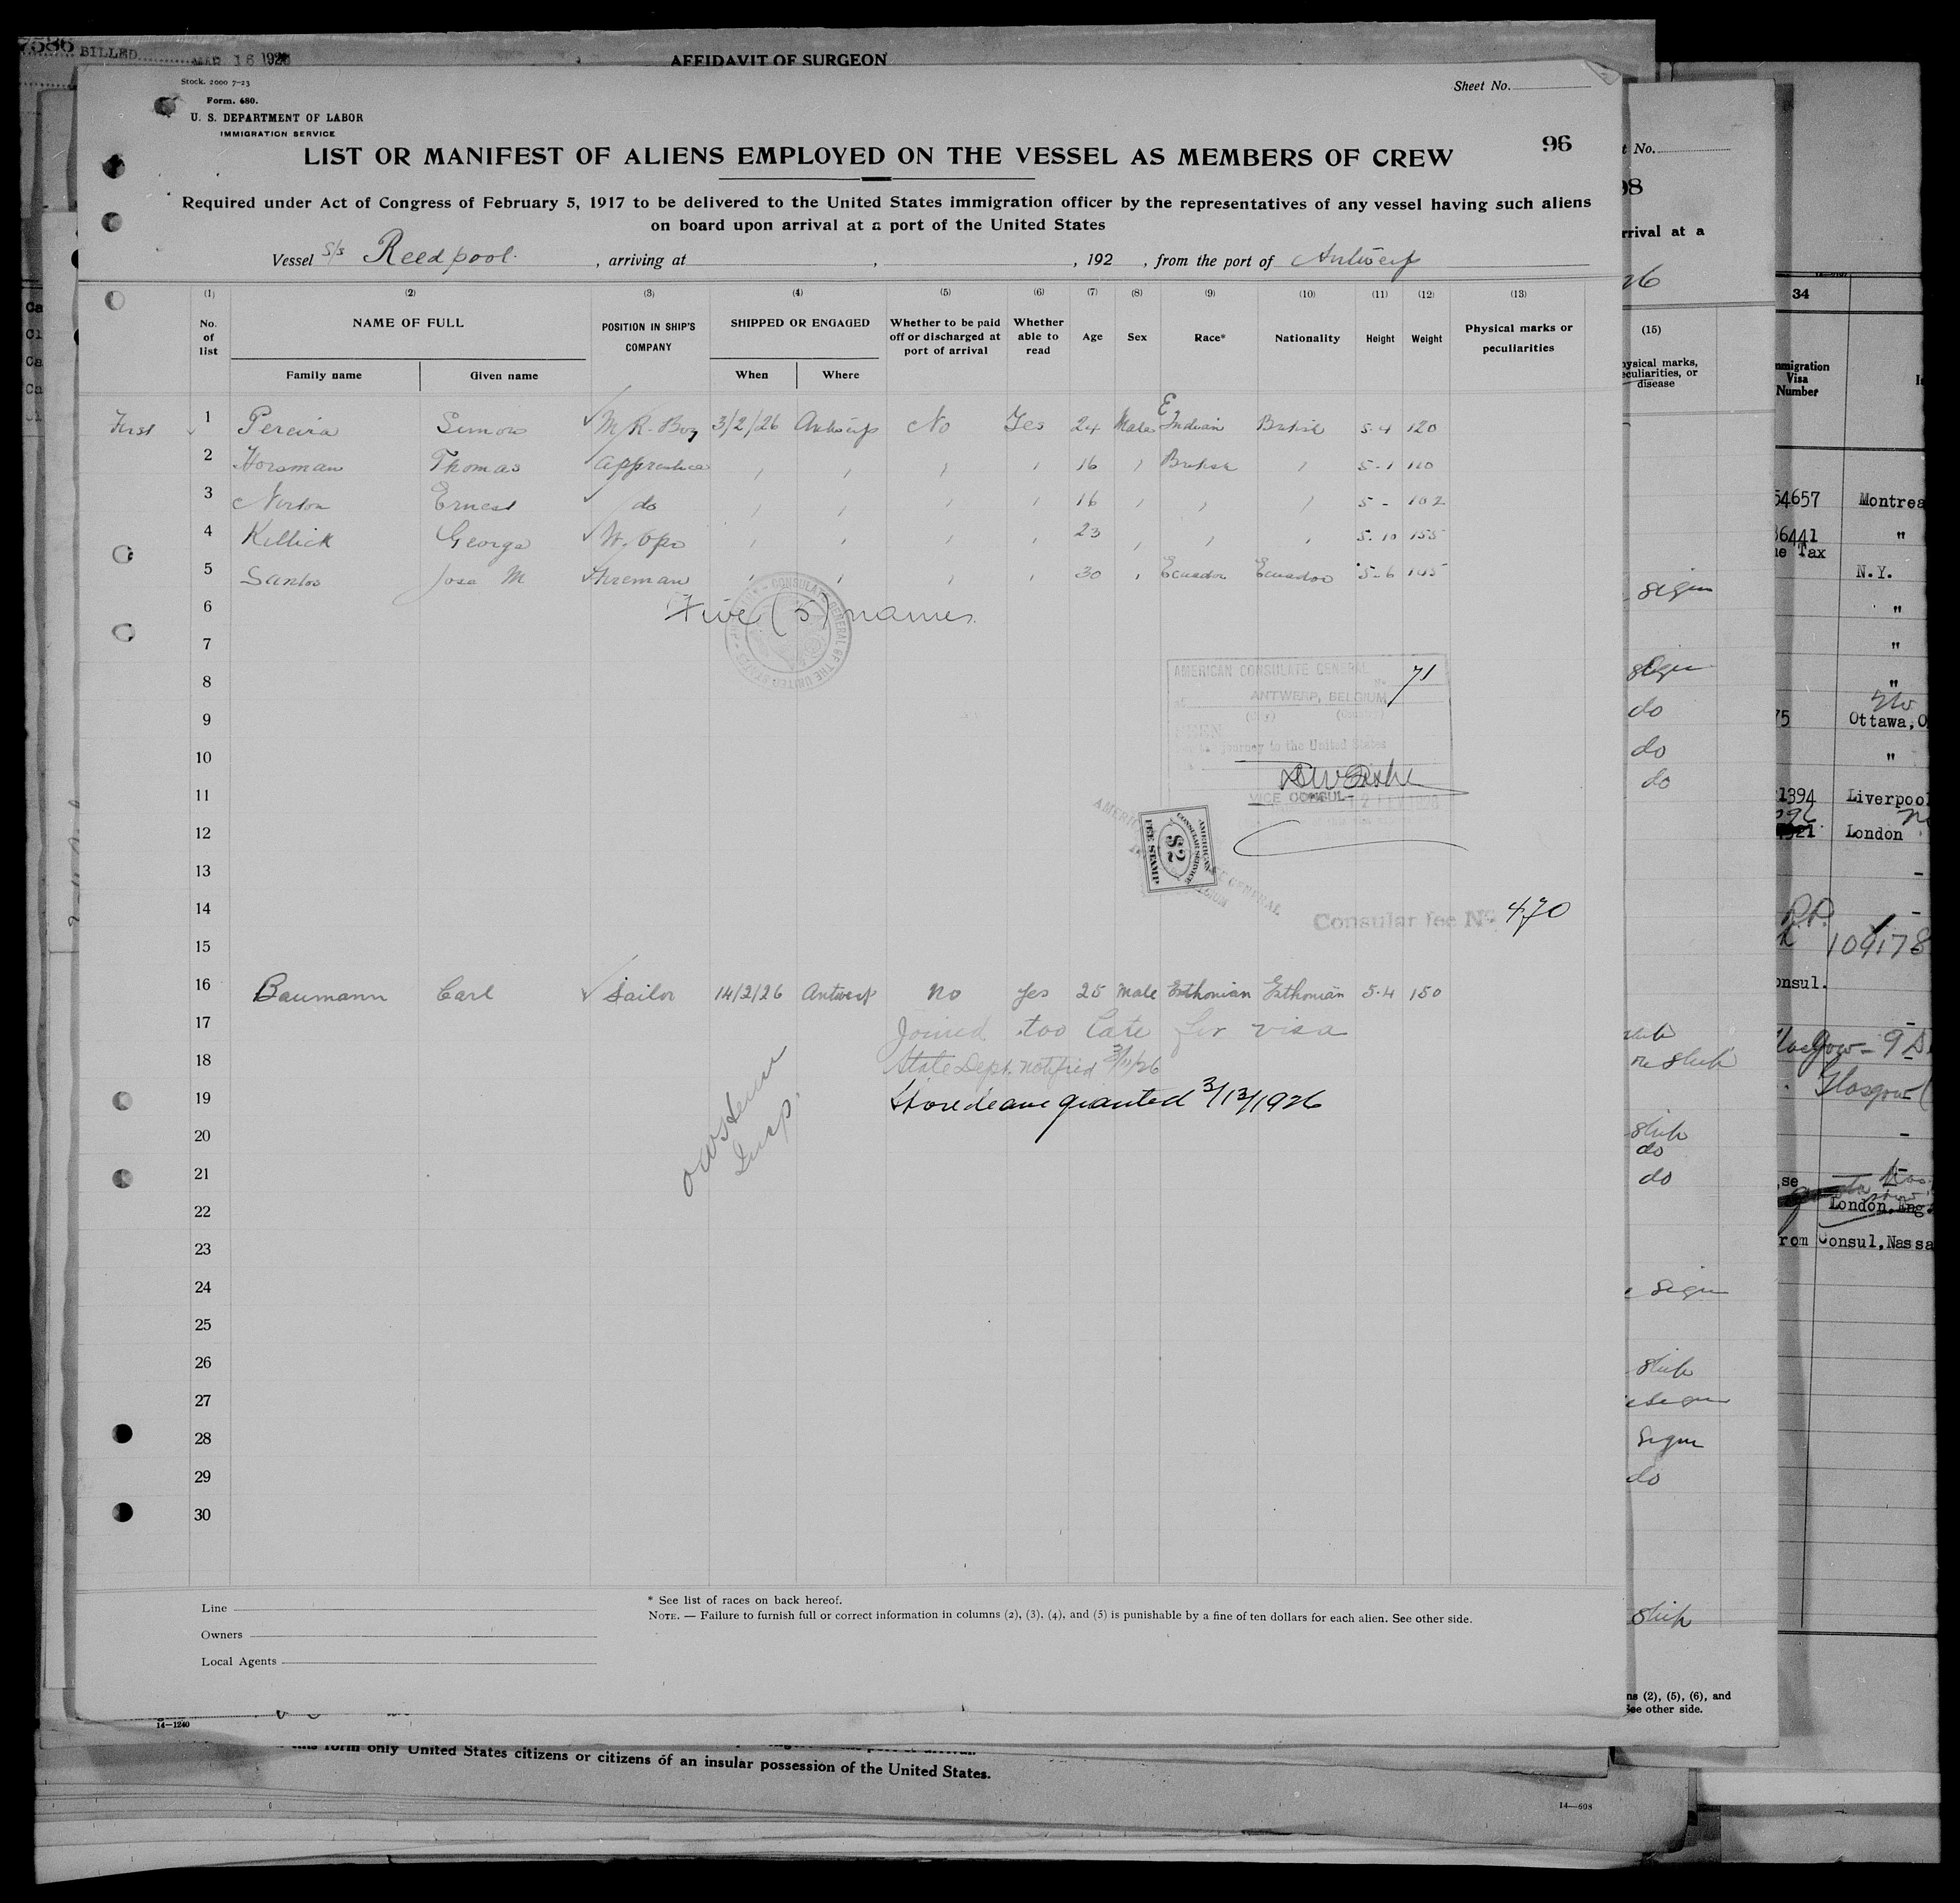 7586 BILLED MAR 16 192
AFFIDAVIT OF SURGEON
Stock. 2000 7-23
Form. 680.
U. S. DEPARTMENT OF LABOR
IMMIGRATION SERVICE
Sheet No.
96
LIST OR MANIFEST OF ALIENS EMPLOYED ON THE VESSEL AS MEMBERS OF CREW
Required under Act of Congress of February 5, 1917 to be delivered to the United States immigration officer by the representatives of any vessel having such aliens
on board upon arrival at a port of the United States
Vessel S/s Reedpool , arriving at , , 192 , from the port of Antwerp
(1) (2) (3) (4) (5) (6) (7) (8) (9) (10) (11) (12) (13)
No. of list
NAME OF FULL
Family name Given name
POSITION IN SHIP'S COMPANY
SHIPPED OR ENGAGED
When Where
Whether to be paid off or discharged at port of arrival
Whether able to read
Age Sex Race* Nationality Height Weight
Physical marks or peculiarities
First 1 Pereira Simon M.R. Boy 3/2/26 Antwerp No Yes 24 Male E Indian British 5-4 120
2 Horsman Thomas Apprentice 16 British 5-1 110
3 Norton Ernest do 16 5 - 102
4 Killick George W. Opr 23 5-10 155
5 Santos Jose M Fireman 30 Ecuador Ecuador 5-6 145
6 Five (5) names
7
8
9
10
11
12
13
14
15
CONSULATE GENERAL OF THE UNITED STATES
AMERICAN CONSULATE GENERAL
No. 71
ANTWERP, BELGIUM
(City) (Country)
SEEN
journey to the United States
VICE CONSUL
AMERICAN CONSULAR SERVICE
$2
FEE STAMP
Consular fee No. 470
16 Baumann Carl Sailor 14/2/26 Antwerp No Yes 25 Male Esthonian Esthonian 5-4 150
17 Joined too late for visa
18 State Dept. notified 3/11/26
19 Shore leave granted 3/13/1926
Insp.
20
21
22
23
24
25
26
27
28
29
30
Line
Owners
Local Agents
* See list of races on back hereof.
NOTE. — Failure to furnish full or correct information in columns (2), (3), (4), and (5) is punishable by a fine of ten dollars for each alien. See other side.
14—1240
this form only United States citizens or citizens of an insular possession of the United States.
14—698
t No.
98
rrival at a
26
(15)
hysical marks, peculiarities, or disease
do
do
do
do
do
do
ns (2), (5), (6), and
See other side.
34
mmigration
Visa
Number
54657 Montrea
36441 "
ne Tax
N.Y.
"
"
"
75 Ottawa, O
"
1394 Liverpool
London
109178
onsul.
Glasgow
London, Eng.
rom Consul, Nassa